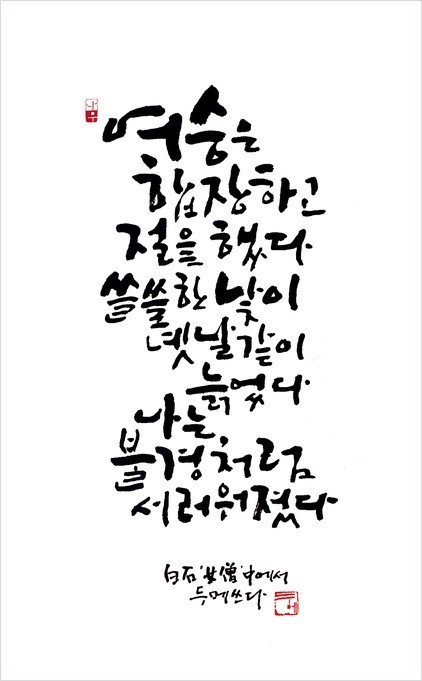 여승은
합장하고
절을 했다
쓸쓸한 낯이
녯날같이
늙었다
나는
불경처럼
서러워졌다
白石 '女僧' 中에서
두메쓰다